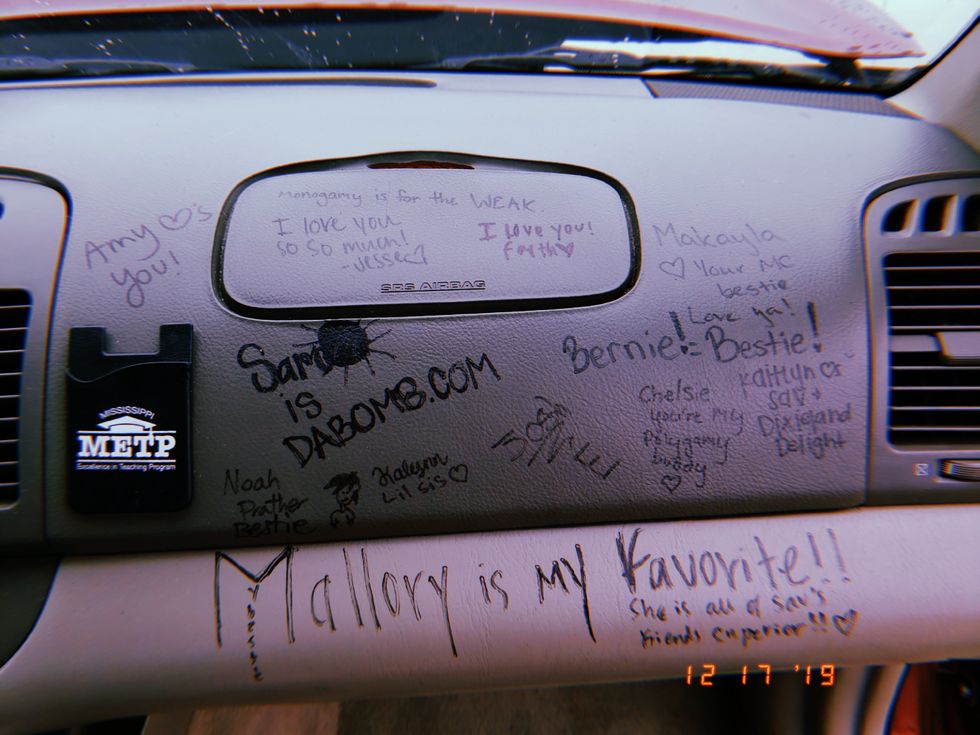 Monogamy is for the WEAK.
I love you
so so much!
-Jesse♡
I love you!
Faith♡
SRS AIRBAG
Amy ♡'s
you!
Makayla
♡ Your MC
bestie
Love ya!
Sam
is
DABOMB.COM
Bernie! = Bestie!
MISSISSIPPI
METP
Excellence in Teaching Program
Chelsie
you're my
Polygamy
buddy
♡
Kaitlyn ♡s
sav +
Dixieland
Delight
Noah
Prather
Bestie
Kalynn
Lil sis ♡
Mallory is my Favorite!!
She is all of sav's
friends superior!! ♡
12 17 '19